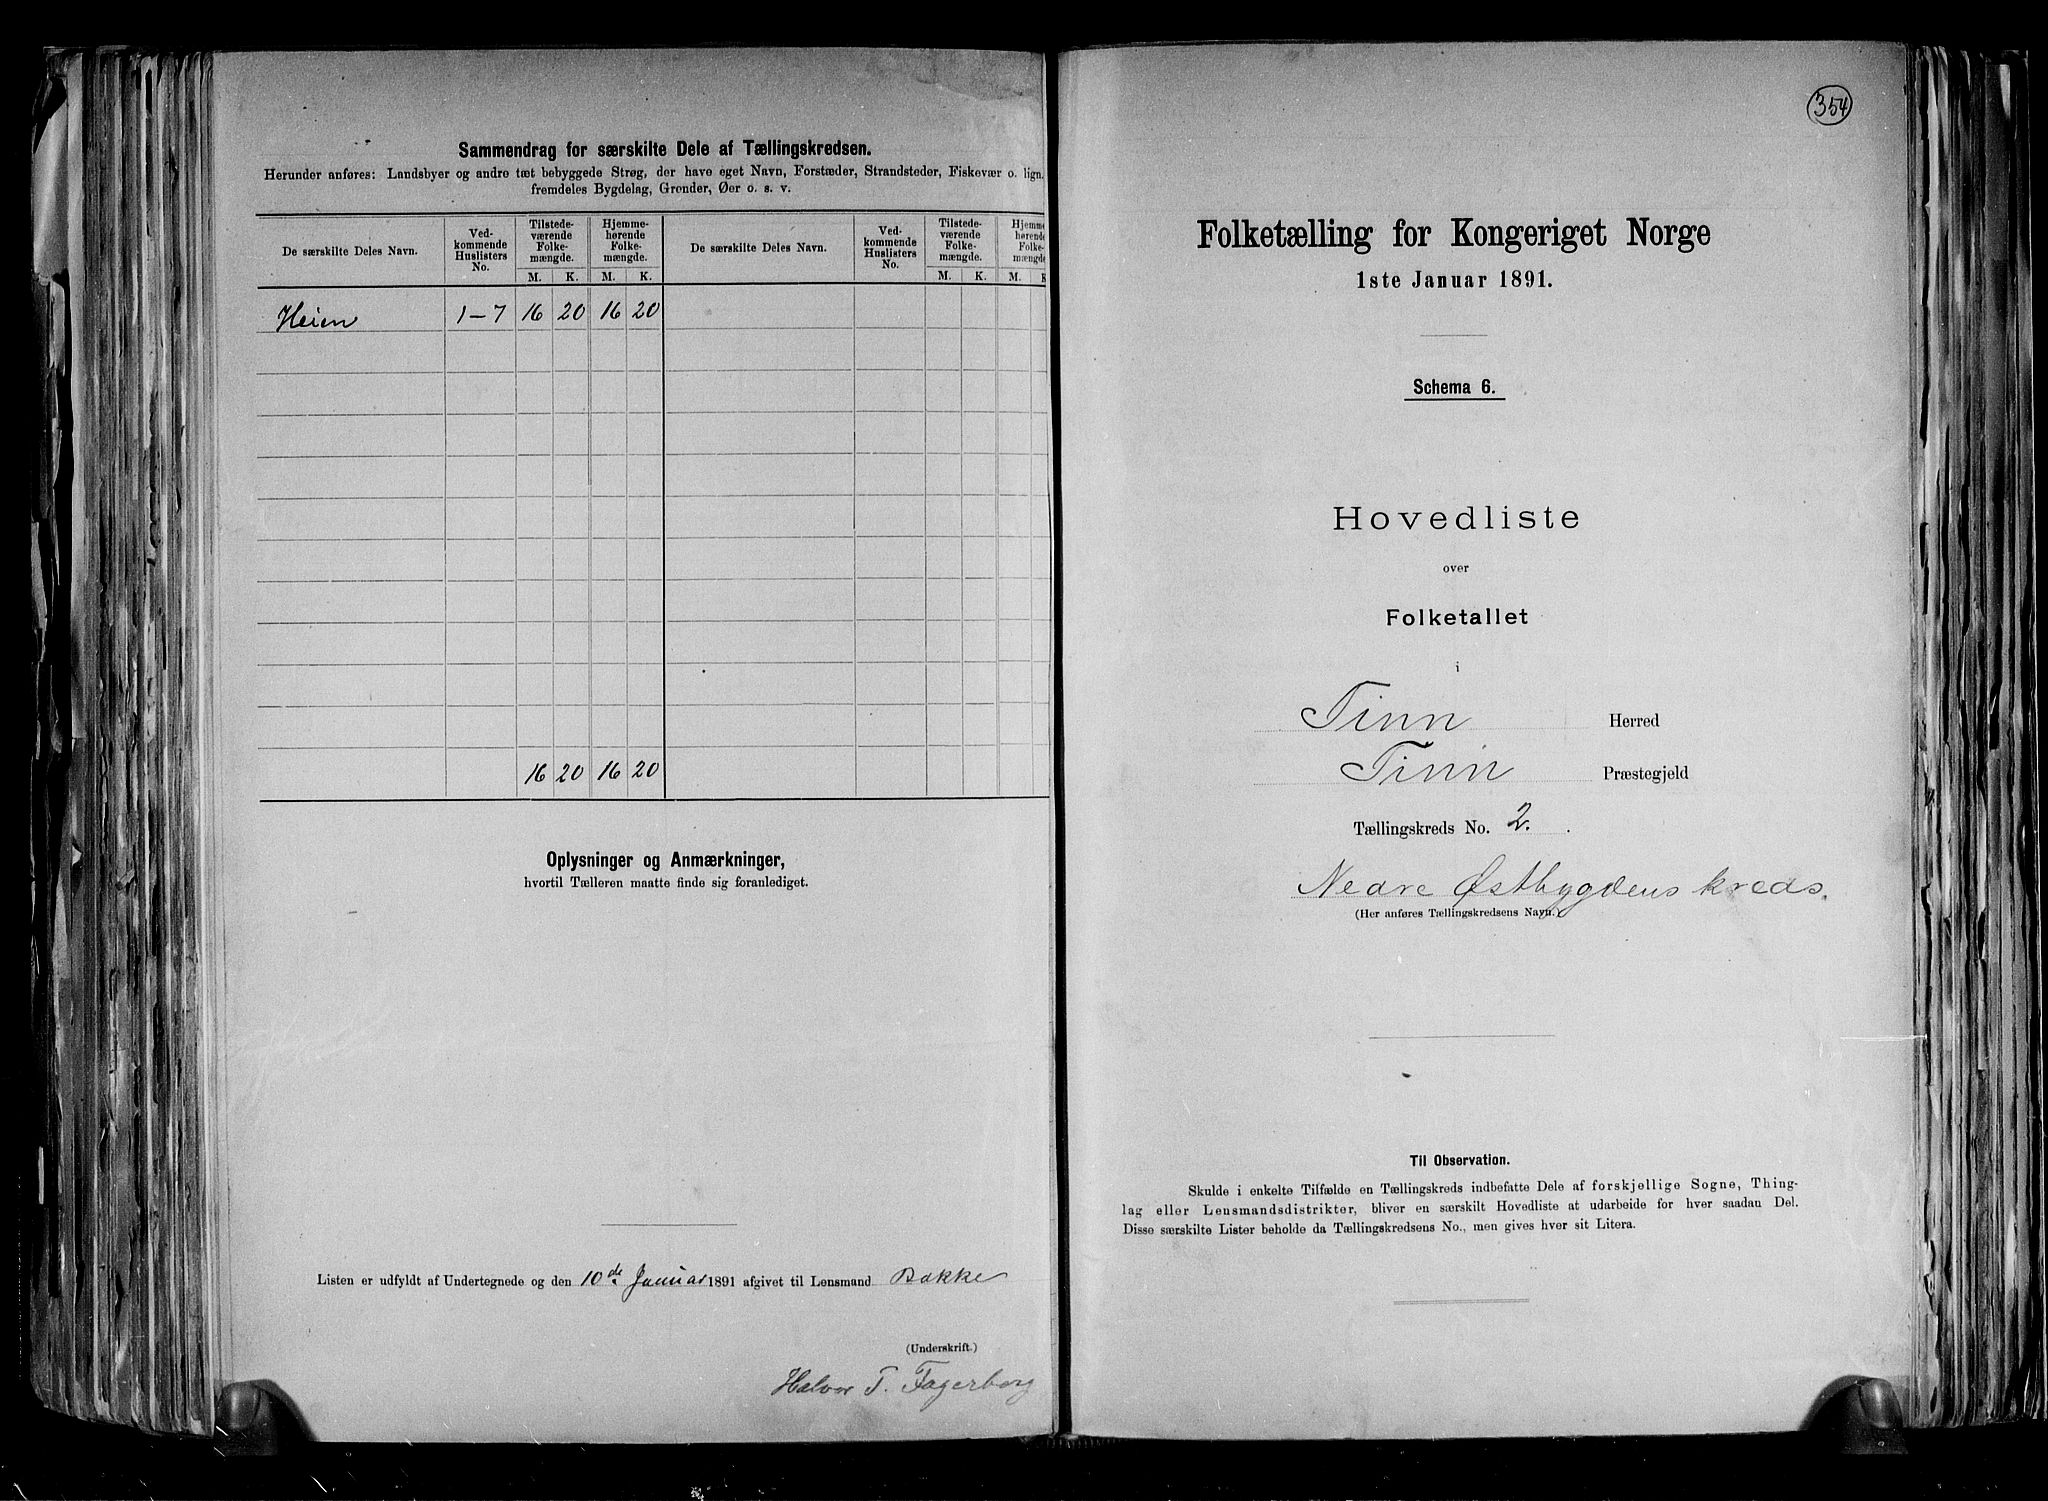 Sammendrag for særskilte Dele af Tællingskredsen.
Herunder anføres: Landsbyer og andre tæt bebyggede Strøg, der have eget Navn, Forstæder, Strandsteder, Fiskevær o. lign.
fremdeles Bygdelag, Grender, Øer o. s. v.
De særskilte Deles Navn. Ved-kommende Huslisters No. Tilstede-værende Folke-mængde. Hjemme-hørende Folke-mængde. De særskilte Deles Navn. Ved-kommende Huslisters No. Tilstede-værende Folke-mængde. Hjemme-hørende Folke-mængde
M. K. M. K. M. K. M. K
Heien 1-7 16 20 16 20
16 20 16 20
Oplysninger og Anmærkninger,
hvortil Tælleren maatte finde sig foranlediget.
Listen er udfyldt af Undertegnede og den 10de Januar 1891 afgivet til Lensmand Bakke
(Underskrift.)
Halvor T. Fagerborg
354
Folketælling for Kongeriget Norge
1ste Januar 1891.
Schema 6.
Hovedliste
over
Folketallet
i
Tinn Herred
Tinn Præstegjeld
Tællingskreds No. 2.
Nedre Østbygdens kreds.
(Her anføres Tællingskredsens Navn.)
Til Observation.
Skulde i enkelte Tilfælde en Tællingskreds indbefatte Dele af forskjellige Sogne, Thing-
lag eller Lensmandsdistrikter, bliver en særskilt Hovedliste at udarbeide for hver saadan Del.
Disse særskilte Lister beholde da Tællingskredsens No., men gives hver sit Litera.